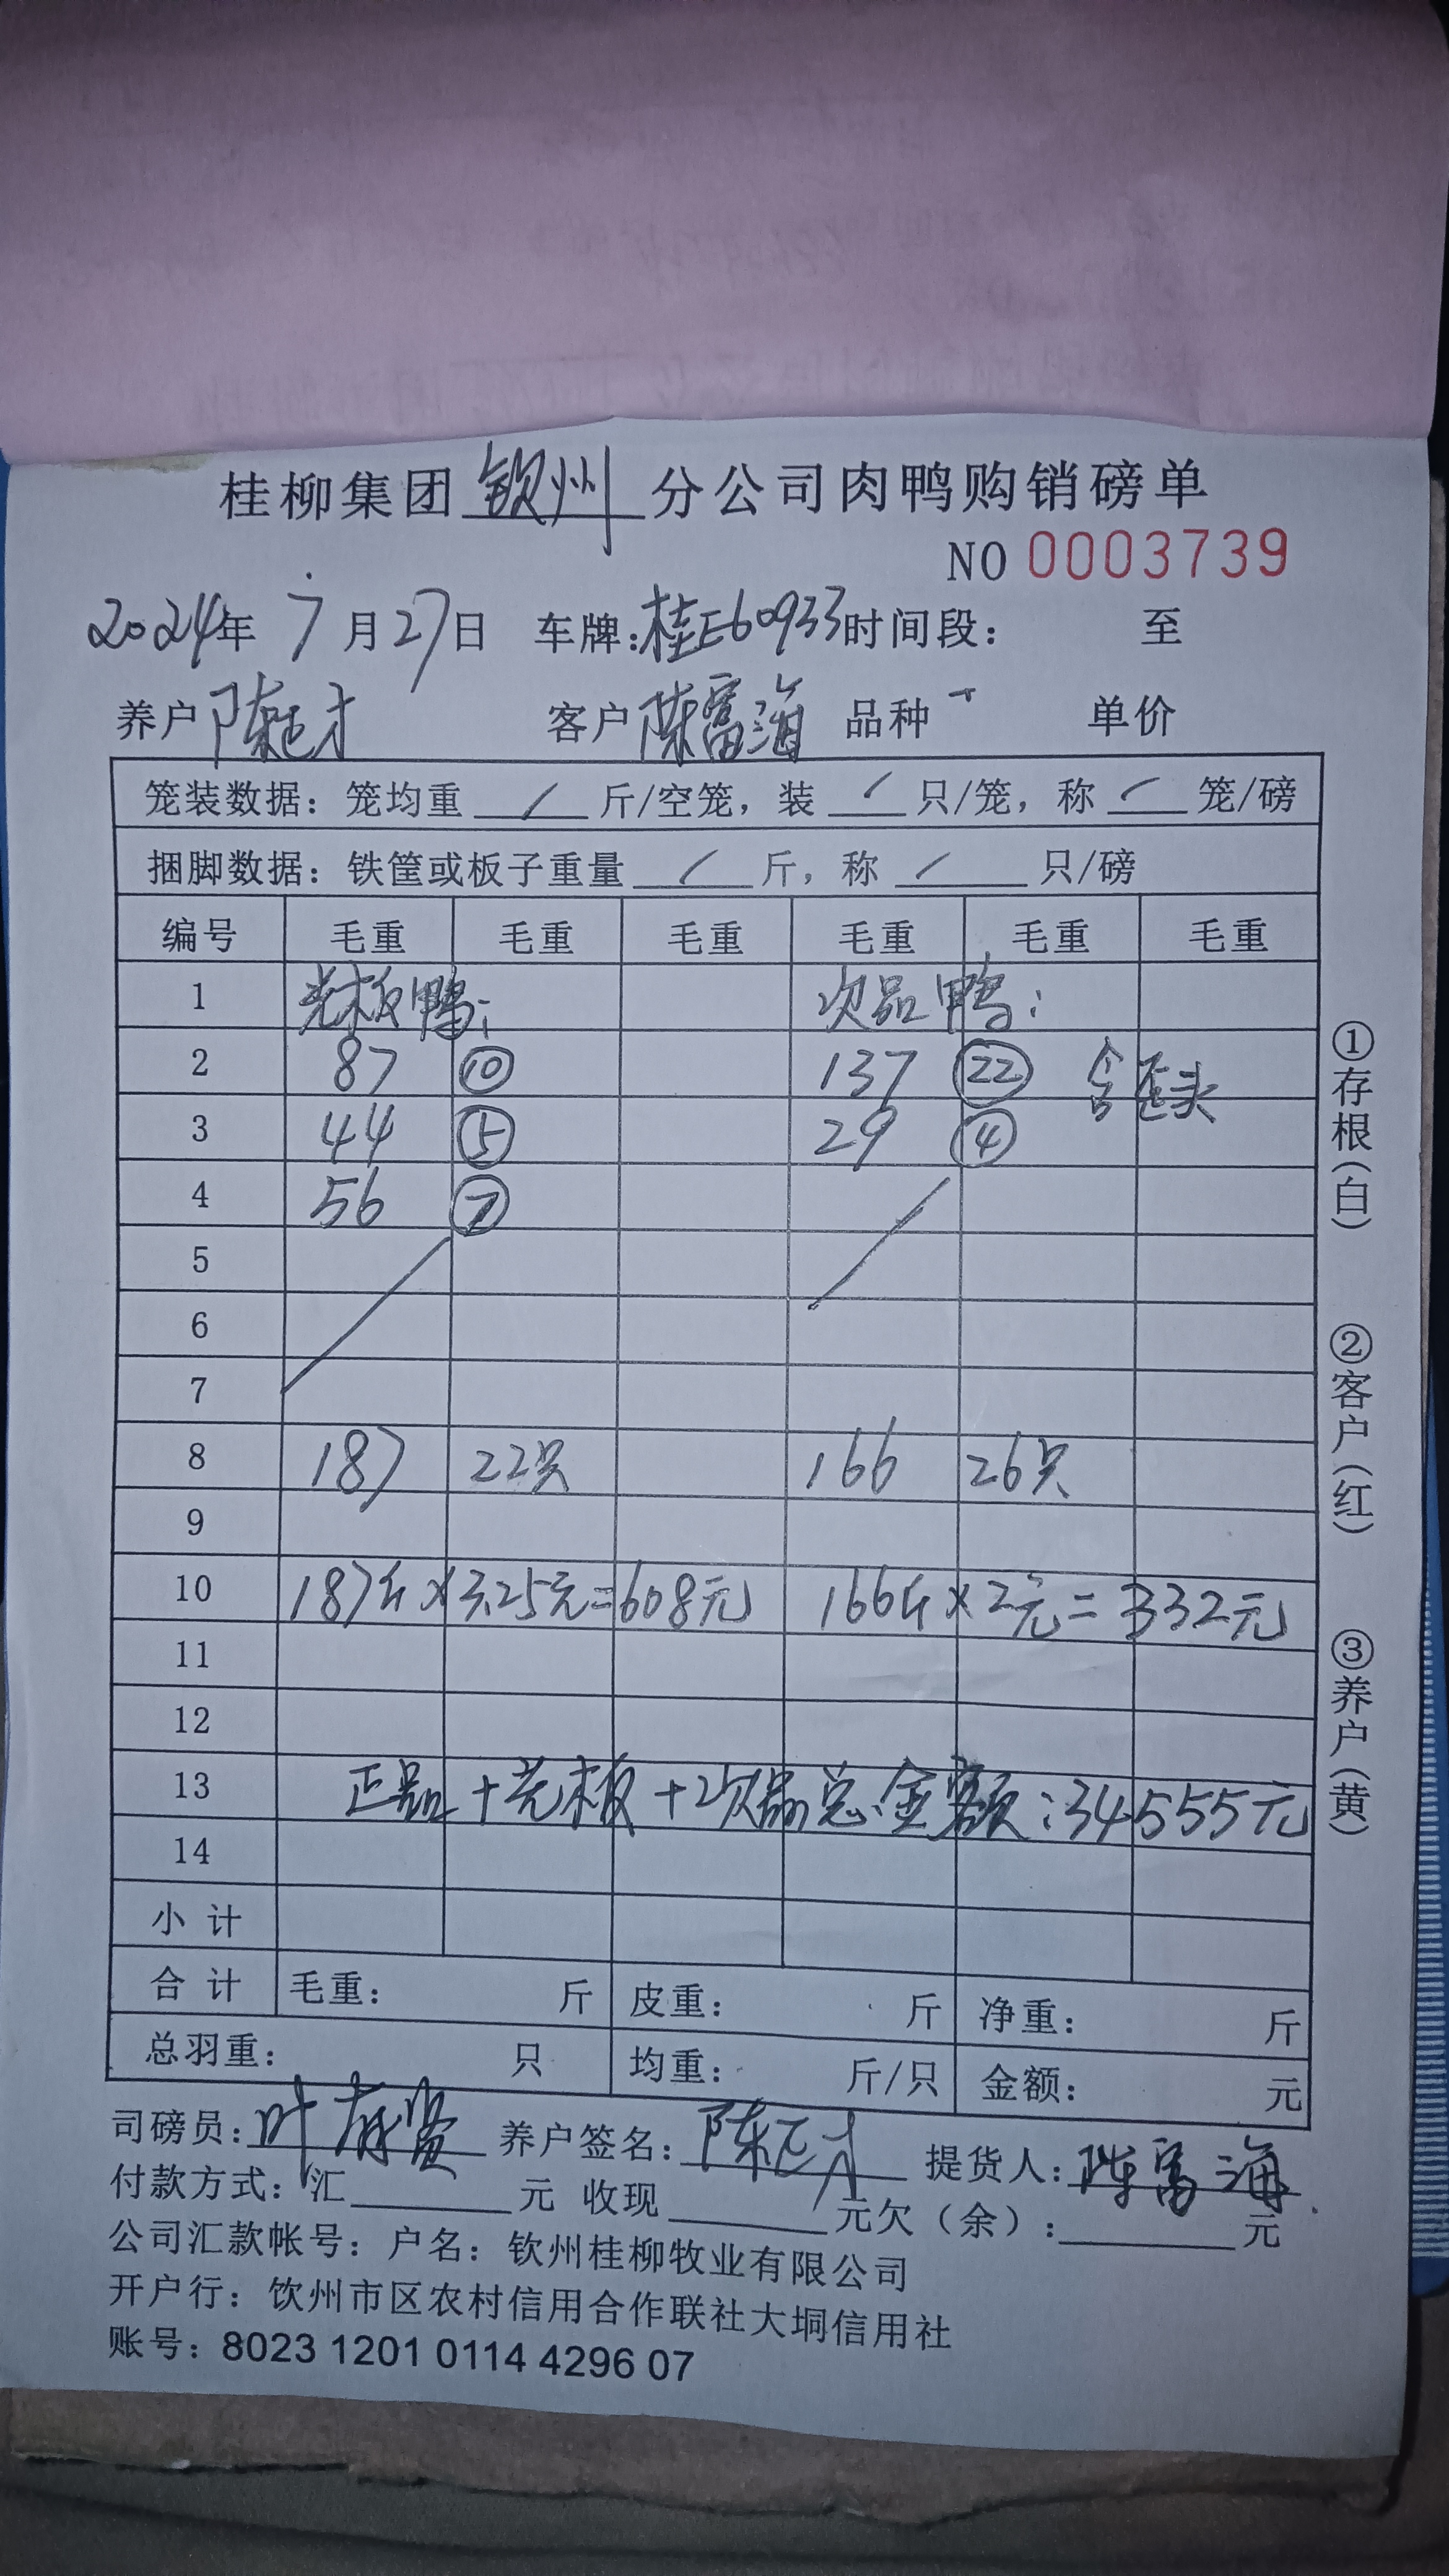 桂柳集团钦州分公司肉鸭购销磅单
NO 0003739
2024年 7月27日 车牌:桂E60933时间段: 至
养户 客户陈富海 品种 单价
笼装数据: 笼均重 / 斤/空笼, 装 / 只/笼, 称 / 笼/磅
捆脚数据: 铁筐或板子重量 / 斤, 称 / 只/磅
编号 毛重 毛重 毛重 毛重 毛重 毛重
1 光板鸭: 次品鸭:
2 87 ⑩ 137 ㉒ 含歪头
3 44 ⑤ 29 ④
4 56 ⑦
5
6
7
8 187 22只 166 26只
9
10 187斤×3.25元=608元 166斤×2元=332元
11
12
13 正品+光板+次品总金额:34555元
14
小计
合计 毛重: 斤 皮重: 斤 净重: 斤
总羽重: 只 均重: 斤/只 金额: 元
司磅员: 养户签名: 提货人:陈富海
付款方式: 汇 元 收现 元欠(余): 元
公司汇款帐号: 户名: 钦州桂柳牧业有限公司
开户行: 钦州市区农村信用合作联社大垌信用社
账号: 8023 1201 0114 4296 07
①存根(白)
②客户(红)
③养户(黄)